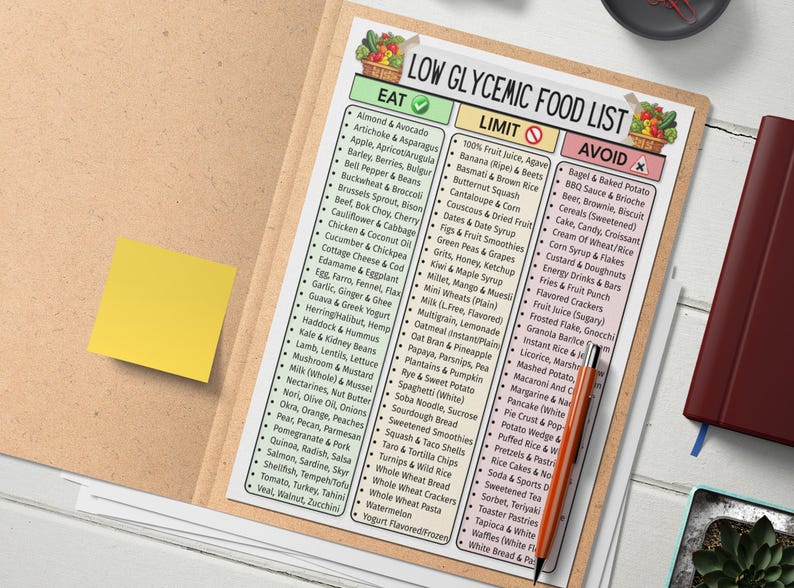 LOW GLYCEMIC FOOD LIST
EAT
Almond & Avocado
Artichoke & Asparagus
Apple, Apricot/Arugula
Barley, Berries, Bulgur
Bell Pepper & Beans
Buckwheat & Broccoli
Brussels Sprout, Bison
Beef, Bok Choy, Cherry
Cauliflower & Cabbage
Chicken & Coconut Oil
Cucumber & Chickpea
Cottage Cheese & Cod
Edamame & Eggplant
Egg, Farro, Fennel, Flax
Garlic, Ginger & Ghee
Guava & Greek Yogurt
Herring/Halibut, Hemp
Haddock & Hummus
Kale & Kidney Beans
Lamb, Lentils, Lettuce
Mushroom & Mustard
Milk (Whole) & Mussel
Nectarines, Nut Butter
Nori, Olive Oil, Onions
Okra, Orange, Peaches
Pear, Pecan, Parmesan
Pomegranate & Pork
Quinoa, Radish, Salsa
Salmon, Sardine, Skyr
Shellfish, Tempeh/Tofu
Tomato, Turkey, Tahini
Veal, Walnut, Zucchini
LIMIT
100% Fruit Juice, Agave
Banana (Ripe) & Beets
Basmati & Brown Rice
Butternut Squash
Cantaloupe & Corn
Couscous & Dried Fruit
Dates & Date Syrup
Figs & Fruit Smoothies
Green Peas & Grapes
Grits, Honey, Ketchup
Kiwi & Maple Syrup
Millet, Mango & Muesli
Mini Wheats (Plain)
Milk (L.Free, Flavored)
Multigrain, Lemonade
Oatmeal (Instant/Plain)
Oat Bran & Pineapple
Papaya, Parsnips, Pea
Plantains & Pumpkin
Rye & Sweet Potato
Spaghetti (White)
Soba Noodle, Sucrose
Sourdough Bread
Sweetened Smoothies
Squash & Taco Shells
Taro & Tortilla Chips
Turnips & Wild Rice
Whole Wheat Bread
Whole Wheat Crackers
Whole Wheat Pasta
Watermelon
Yogurt Flavored/Frozen
AVOID
Bagel & Baked Potato
BBQ Sauce & Brioche
Beer, Brownie, Biscuit
Cereals (Sweetened)
Cake, Candy, Croissant
Cream Of Wheat/Rice
Corn Syrup & Flakes
Custard & Doughnuts
Energy Drinks & Bars
Fries & Fruit Punch
Flavored Crackers
Fruit Juice (Sugary)
Frosted Flake, Gnocchi
Granola Bar/Ice
Instant Rice &
Licorice,
Mashed Potato,
Macaroni And
Margarine &
Pancake (White
Pie Crust &
Potato Wedge &
Puffed Rice &
Pretzels &
Rice Cakes &
Soda & Sports
Sweetened Tea
Sorbet, Teriyaki
Toaster Pastries
Tapioca & White
Waffles (White
White Bread &